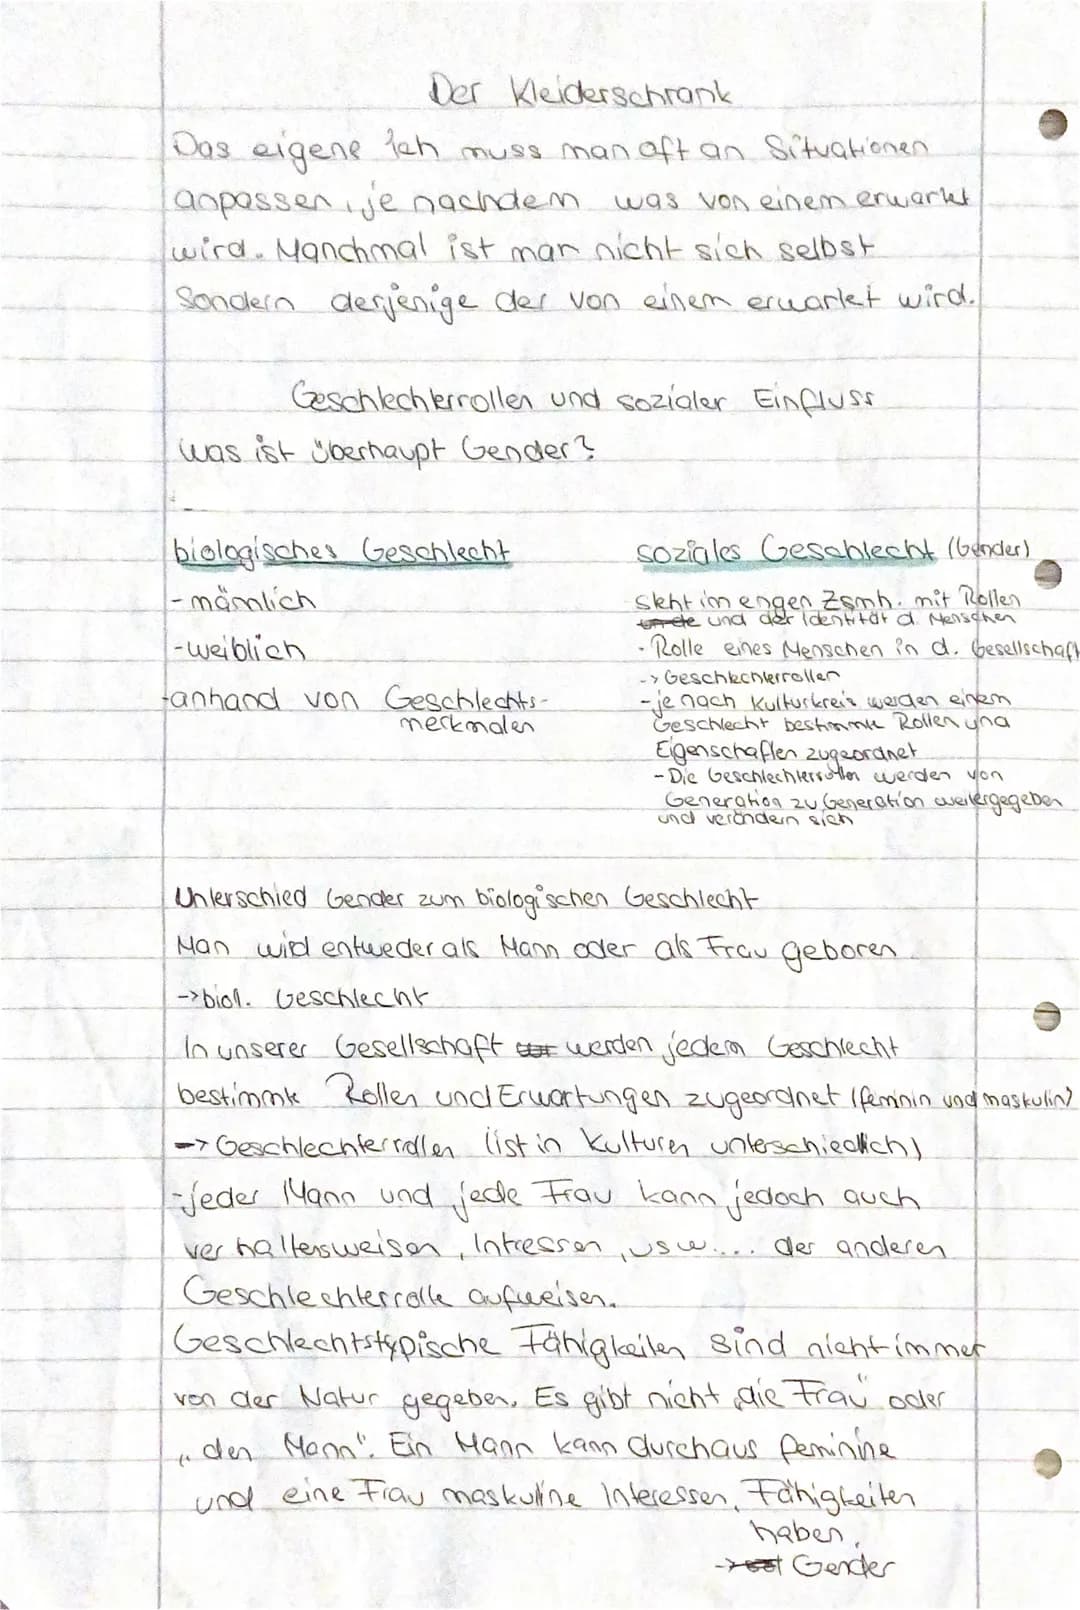 Der Kleiderschrank
Das eigene Ich muss man oft an Situationen
anpassen, je nachdem was von einem erwartet
wird. Manchmal ist man nicht sich selbst
Sondern derjenige der von einem erwartet wird.
Geschlechterrollen und sozialer Einfluss
Was ist überhaupt Gender?
biologisches Geschlecht
- männlich
- weiblich
- anhand von Geschlechts-
merkmalen
soziales Geschlecht (Gender)
steht im engen Zsmh. mit Rollen
und der Identität d. Menschen
- Rolle eines Menschen in d. Gesellschaft
-> Geschlechterrollen
- je nach Kulturkreis werden einem
Geschlecht bestimmte Rollen und
Eigenschaften zugeordnet
- Die Geschlechterrollen werden von
Generation zu Generation weitergegeben
und verändern sich
Unterschied Gender zum biologischen Geschlecht
Man wird entweder als Mann oder als Frau geboren.
-> biol. Geschlecht
In unserer Gesellschaft werden jedem Geschlecht
bestimmte Rollen und Erwartungen zugeordnet (feminin und maskulin)
-> Geschlechterrollen (ist in Kulturen unterschiedlich)
- jeder Mann und jede Frau kann jedoch auch
verhaltensweisen, Intressen, usw.... der anderen
Geschlechterrolle aufweisen.
Geschlechtstypische Fähigkeiten sind nicht immer
von der Natur gegeben. Es gibt nicht „die Frau" oder
„den Mann". Ein Mann kann durchaus feminine
und eine Frau maskuline Interessen, Fähigkeiten
haben.
-> Gender